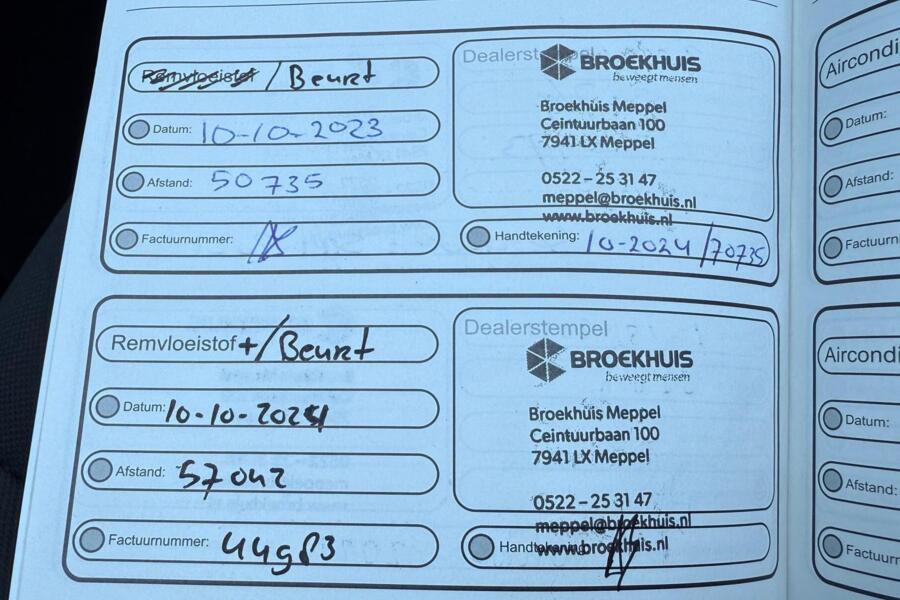 Remvloeistof / Beurt
Datum: 10-10-2023
Afstand: 50735
Factuurnummer:
Dealerstempel
BROEKHUIS
beweegt mensen
Broekhuis Meppel
Ceintuurbaan 100
7941 LX Meppel
0522 – 25 31 47
meppel@broekhuis.nl
www.broekhuis.nl
Handtekening: 10-2024/70735
Remvloeistof +/Beurt
Datum: 10-10-2024
Afstand: 57042
Factuurnummer: 44983
Dealerstempel
BROEKHUIS
beweegt mensen
Broekhuis Meppel
Ceintuurbaan 100
7941 LX Meppel
0522 – 25 31 47
meppel@broekhuis.nl
www.broekhuis.nl
Handtekening:
Aircondi
Datum:
Afstand:
Factuurn
Aircondi
Datum:
Afstand:
Factuurn